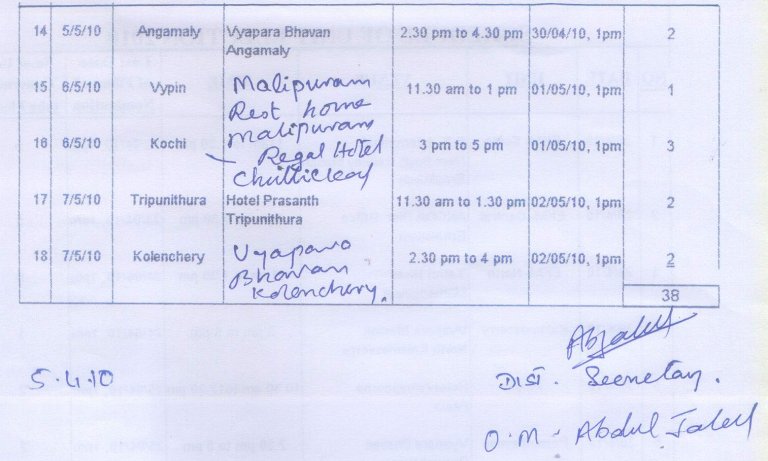 14 5/5/10 Angamaly Vyapara Bhavan 2.30 pm to 4.30 pm 30/04/10, 1pm 2
Angamaly
15 6/5/10 Vypin Malipuram 11.30 am to 1 pm 01/05/10, 1pm 1
Rest home
Malipuram
16 6/5/10 Kochi Regal Hotel 3 pm to 5 pm 01/05/10, 1pm 3
Chullickal
17 7/5/10 Tripunithura Hotel Prasanth 11.30 am to 1.30 pm 02/05/10, 1pm 2
Tripunithura
18 7/5/10 Kolenchery Vyapara 2.30 pm to 4 pm 02/05/10, 1pm 2
Bhavan
Kolenchery.
38
5.4.10
Dist. Secretary.
O.M. Abdul Jaleel